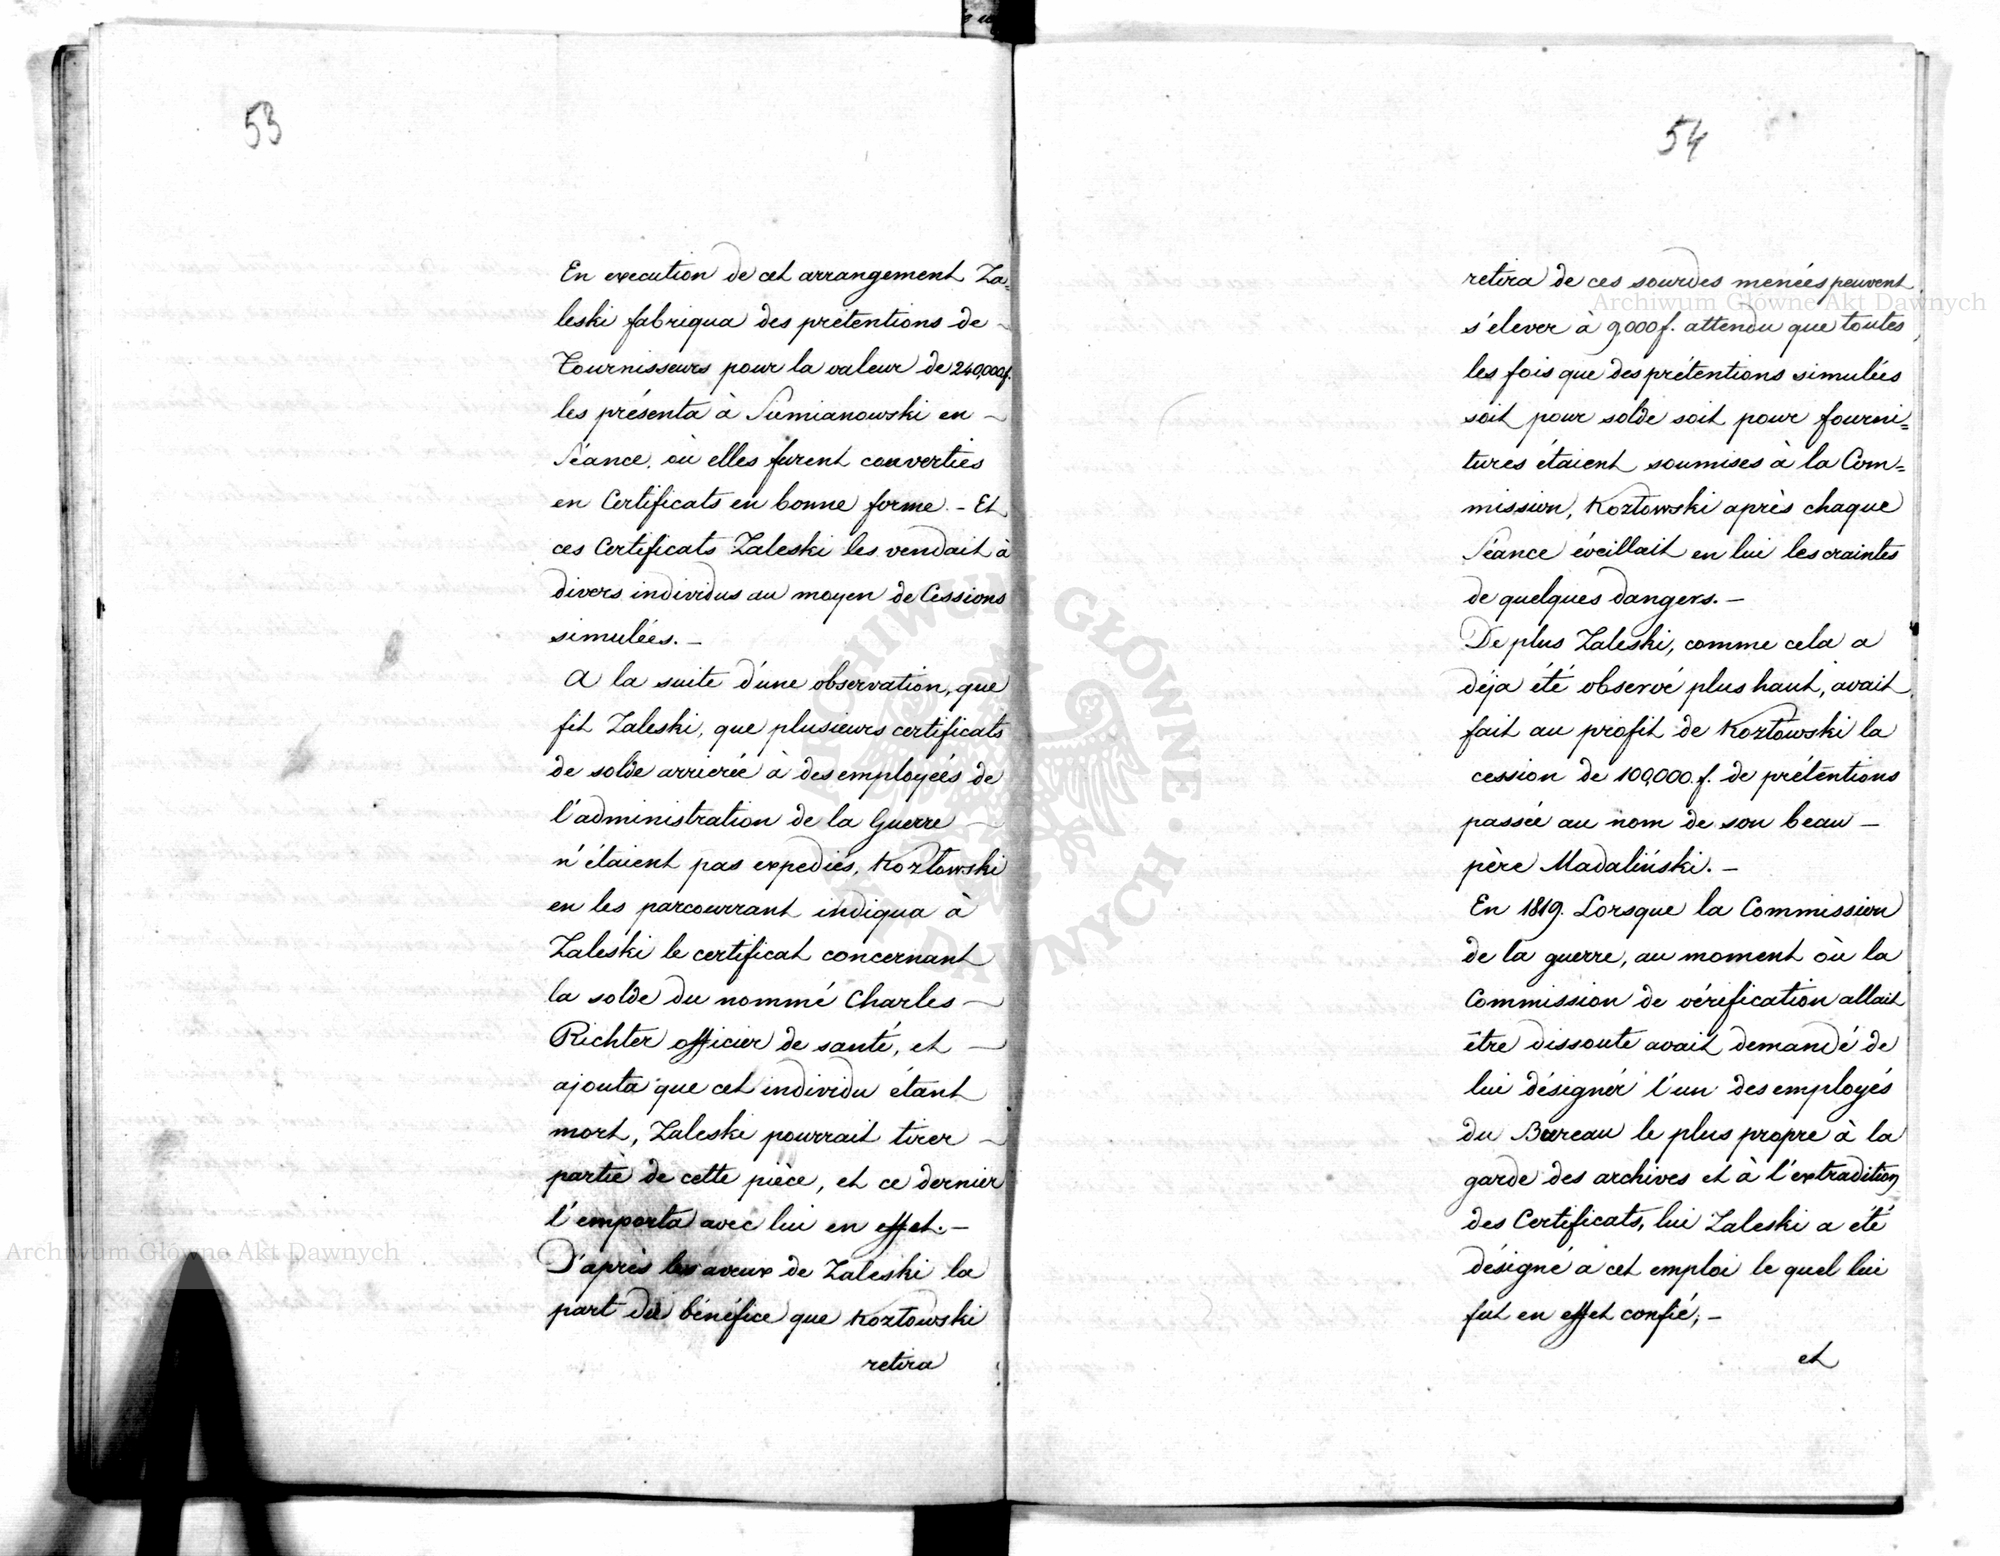 53
En execution de cet arrangement Za=
leski fabriqua des prétentions de
Fournisseurs pour la valeur de 240,000f.
les présenta à Siemianowski en
Séance, où elles furent converties
en Certificats en bonne forme. - Et
ces Certificats Zaleski les vendait à
divers individus au moyen de Cessions
simulées. -
A la suite d'une observation, que
fit Zaleski, que plusieurs certificats
de solde arrierée à des employées de
l'administration de la Guerre
n'étaient pas expediés, Kozłowski
en les parcourrant indiqua à
Zaleski le certificat concernant
la solde du nommé Charles
Richter officier de santé, et
ajouta que cet individu étant
mort, Zaleski pourrait tirer
partie de cette pièce, et ce dernier
l'emporta avec lui en effet. -
D'après les aveux de Zaleski la
part du bénéfice que Kozłowski
retira
54
retira de ces sourdes menées peuvent
s'elever à 9,000 f. attendu que toutes
les fois que des prétentions simulées
soit pour solde soit pour fourni=
tures étaient soumises à la Com=
mission, Kozłowski après chaque
Séance éveillait en lui les craintes
de quelques dangers. -
De plus Zaleski, comme cela a
déja été observé plus haut, avait
fait au profit de Kozłowski la
cession de 100,000. f. de prétentions
passée au nom de son beau -
père Madaliński. -
En 1819. Lorsque la Commission
de la guerre, au moment où la
Commission de vérification allait
être dissoute avait demandé de
lui désigner l'un des employés
du Bureau le plus propre à la
garde des archives et à l'extradition
des Certificats, lui Zaleski a été
désigné a cet emploi le quel lui
fut en effet confié; -
et
Archiwum Główne Akt Dawnych
Archiwum Główne Akt Dawnych
ARCHIWUM GŁÓWNE AKT DAWNYCH